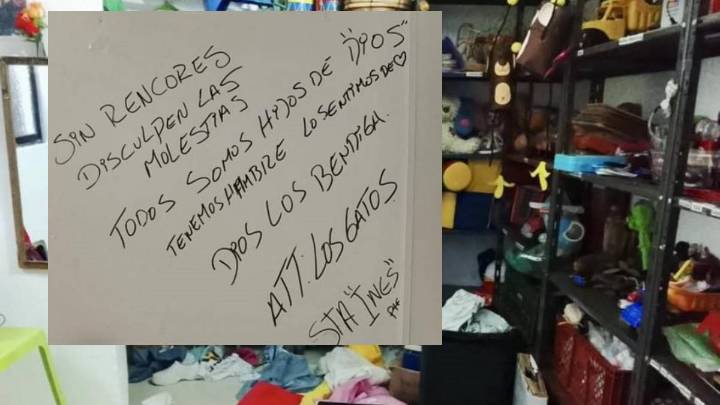 SIN RENCORES
DISCULPEN LAS
MOLESTIAS
TODOS SOMOS HIJOS DE "DYOS"
TENEMOS HAMBRE LO SENTIMOS DE ♡
DIOS LOS BENDIGA.
ATT: LOS GATOS.
STA "INES"